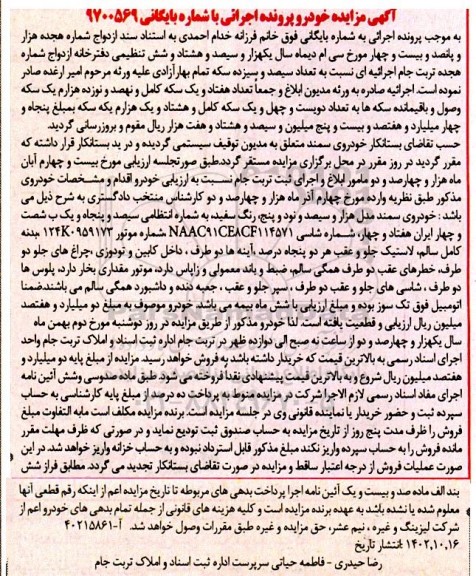 آگهی مزایده خودرو پرونده اجرائی با شماره بایگانی ۹۷۰۰۵۶۹
به موجب پرونده اجرائی به شماره بایگانی فوق خانم فرزانه خدام احمدی به استناد سند ازدواج شماره هجده هزار
و پانصد و بیست و چهار مورخ سی ام دیماه سال یکهزار و سیصد و هشتاد و شش تنظیمی دفترخانه ازدواج شماره
هجده تربت جام اجرائیه ای نسبت به تعداد سیصد و سیزده سکه تمام بهار آزادی علیه ورثه مرحوم امیر ارغده صادر
نموده است. اجرائیه صادره به ورثه مدیون ابلاغ و جمعاً تعداد هفتاد و یک سکه کامل و نهصد و نوزده هزارم یک سکه
وصول و باقیمانده سکه ها به تعداد دویست و چهل و یک سکه کامل و هشتاد و یک هزارم یکه سکه بمبلغ پنجاه و
چهار میلیارد و هفتصد و بیست و پنج میلیون و سیصد و هشتاد و هفت هزار ریال مقوم و بروزرسانی گردید.
حسب تقاضای بستانکار خودروی سمند متعلق به مدیون توقیف سیستمی گردیده و در ید بستانکار قرار داشته که
مقرر گردید در روز مقرر در محل برگزاری مزایده مستقر گردد.طبق صورتجلسه ارزیابی مورخ بیست و چهارم آبان
ماه هزار و چهارصد و دو مامور ابلاغ و اجرای ثبت تربت جام نسبت به ارزیابی خودرو اقدام و مشخصات خودروی
مذکور طبق نظریه وارده مورخ چهارم آذر ماه هزار و چهارصد و دو کارشناس منتخب دادگستری به شرح ذیل می
باشد : خودروی سمند مدل هزار و سیصد و نود و پنج، رنگ سفید، به شماره انتظامی سیصد و پنجاه و یک ب شصت
و چهار ایران هفتاد و چهار، شماره شاسی NAAC91CEACF114571 شماره موتور 124K0959173 ،بدنه
کامل سالم، لاستیک جلو و عقب هر دو پنجاه درصد، آینه ها دو طرف ، داخل کابین و تودوزی ،چراغ های جلو دو
طرف، خطرهای عقب دو طرف همگی سالم، ضبط و باند معمولی و زاپاس دارد، موتور مقداری بخار دارد، پلوس ها
دو طرف ، شاسی های جلو و عقب دو طرف ، سپر جلو و عقب ، جعبه دنده و داشبورد همگی سالم می باشند،ضمنا
اتومبیل فوق تک سوز بوده و مبلغ ارزیابی با شش ماه بیمه می باشد. خودرو موصوف به مبلغ دو میلیارد و هفتصد
میلیون ریال ارزیابی و قطعیت یافته است. لذا خودرو مذکور از طریق مزایده در روز دوشنبه مورخ دوم بهمن ماه
سال یکهزار و چهارصد و دو از ساعت نه صبح الی دوازده ظهر در تربت جام اداره ثبت اسناد و املاک تربت جام واحد
اجرای اسناد رسمی به بالاترین قیمت که خریدار داشته باشد به فروش خواهد رسید. مزایده از مبلغ پایه دو میلیارد و
هفتصد میلیون ریال شروع و به بالاترین قیمت پیشنهادی نقدا فروخته می شود. طبق ماده صدوسی وشش آئین نامه
اجرای مفاد اسناد رسمی لازم الاجرا شرکت در مزایده منوط به پرداخت ده درصد از مبلغ پایه کارشناسی به حساب
سپرده ثبت و حضور خریدار یا نماینده قانونی وی در جلسه مزایده است. برنده مزایده مکلف است مابه التفاوت مبلغ
فروش را ظرف مدت پنج روز از تاریخ مزایده به حساب صندوق ثبت تودیع نماید و در صورتی که ظرف مهلت مقرر
مانده فروش را به حساب سپرده واریز نکند مبلغ مذکور قابل استرداد نبوده و به حساب خزانه واریز خواهد شد. در این
صورت عملیات فروش از درجه اعتبار ساقط و مزایده در صورت تقاضای بستانکار تجدید می گردد. مطابق فراز شش
بند الف ماده صد و بیست و یک آئین نامه اجرا پرداخت بدهی های مربوطه تا تاریخ مزایده اعم از اینکه رقم قطعی آنها
معلوم شده یا نشده باشد به عهده برنده مزایده است و کلیه هزینه های قانونی از جمله تمام بدهی های خودرو اعم از
شرکت لیزینگ و غیره ، نیم عشر، حق مزایده و غیره طبق مقررات وصول خواهد شد. آ-۴۰۲۱۵۸۶۱
۱۴۰۲,۱۰,۱۶ :انتشار تاریخ
رضا حیدری – فاطمه حیاتی سرپرست اداره ثبت اسناد و املاک تربت جام